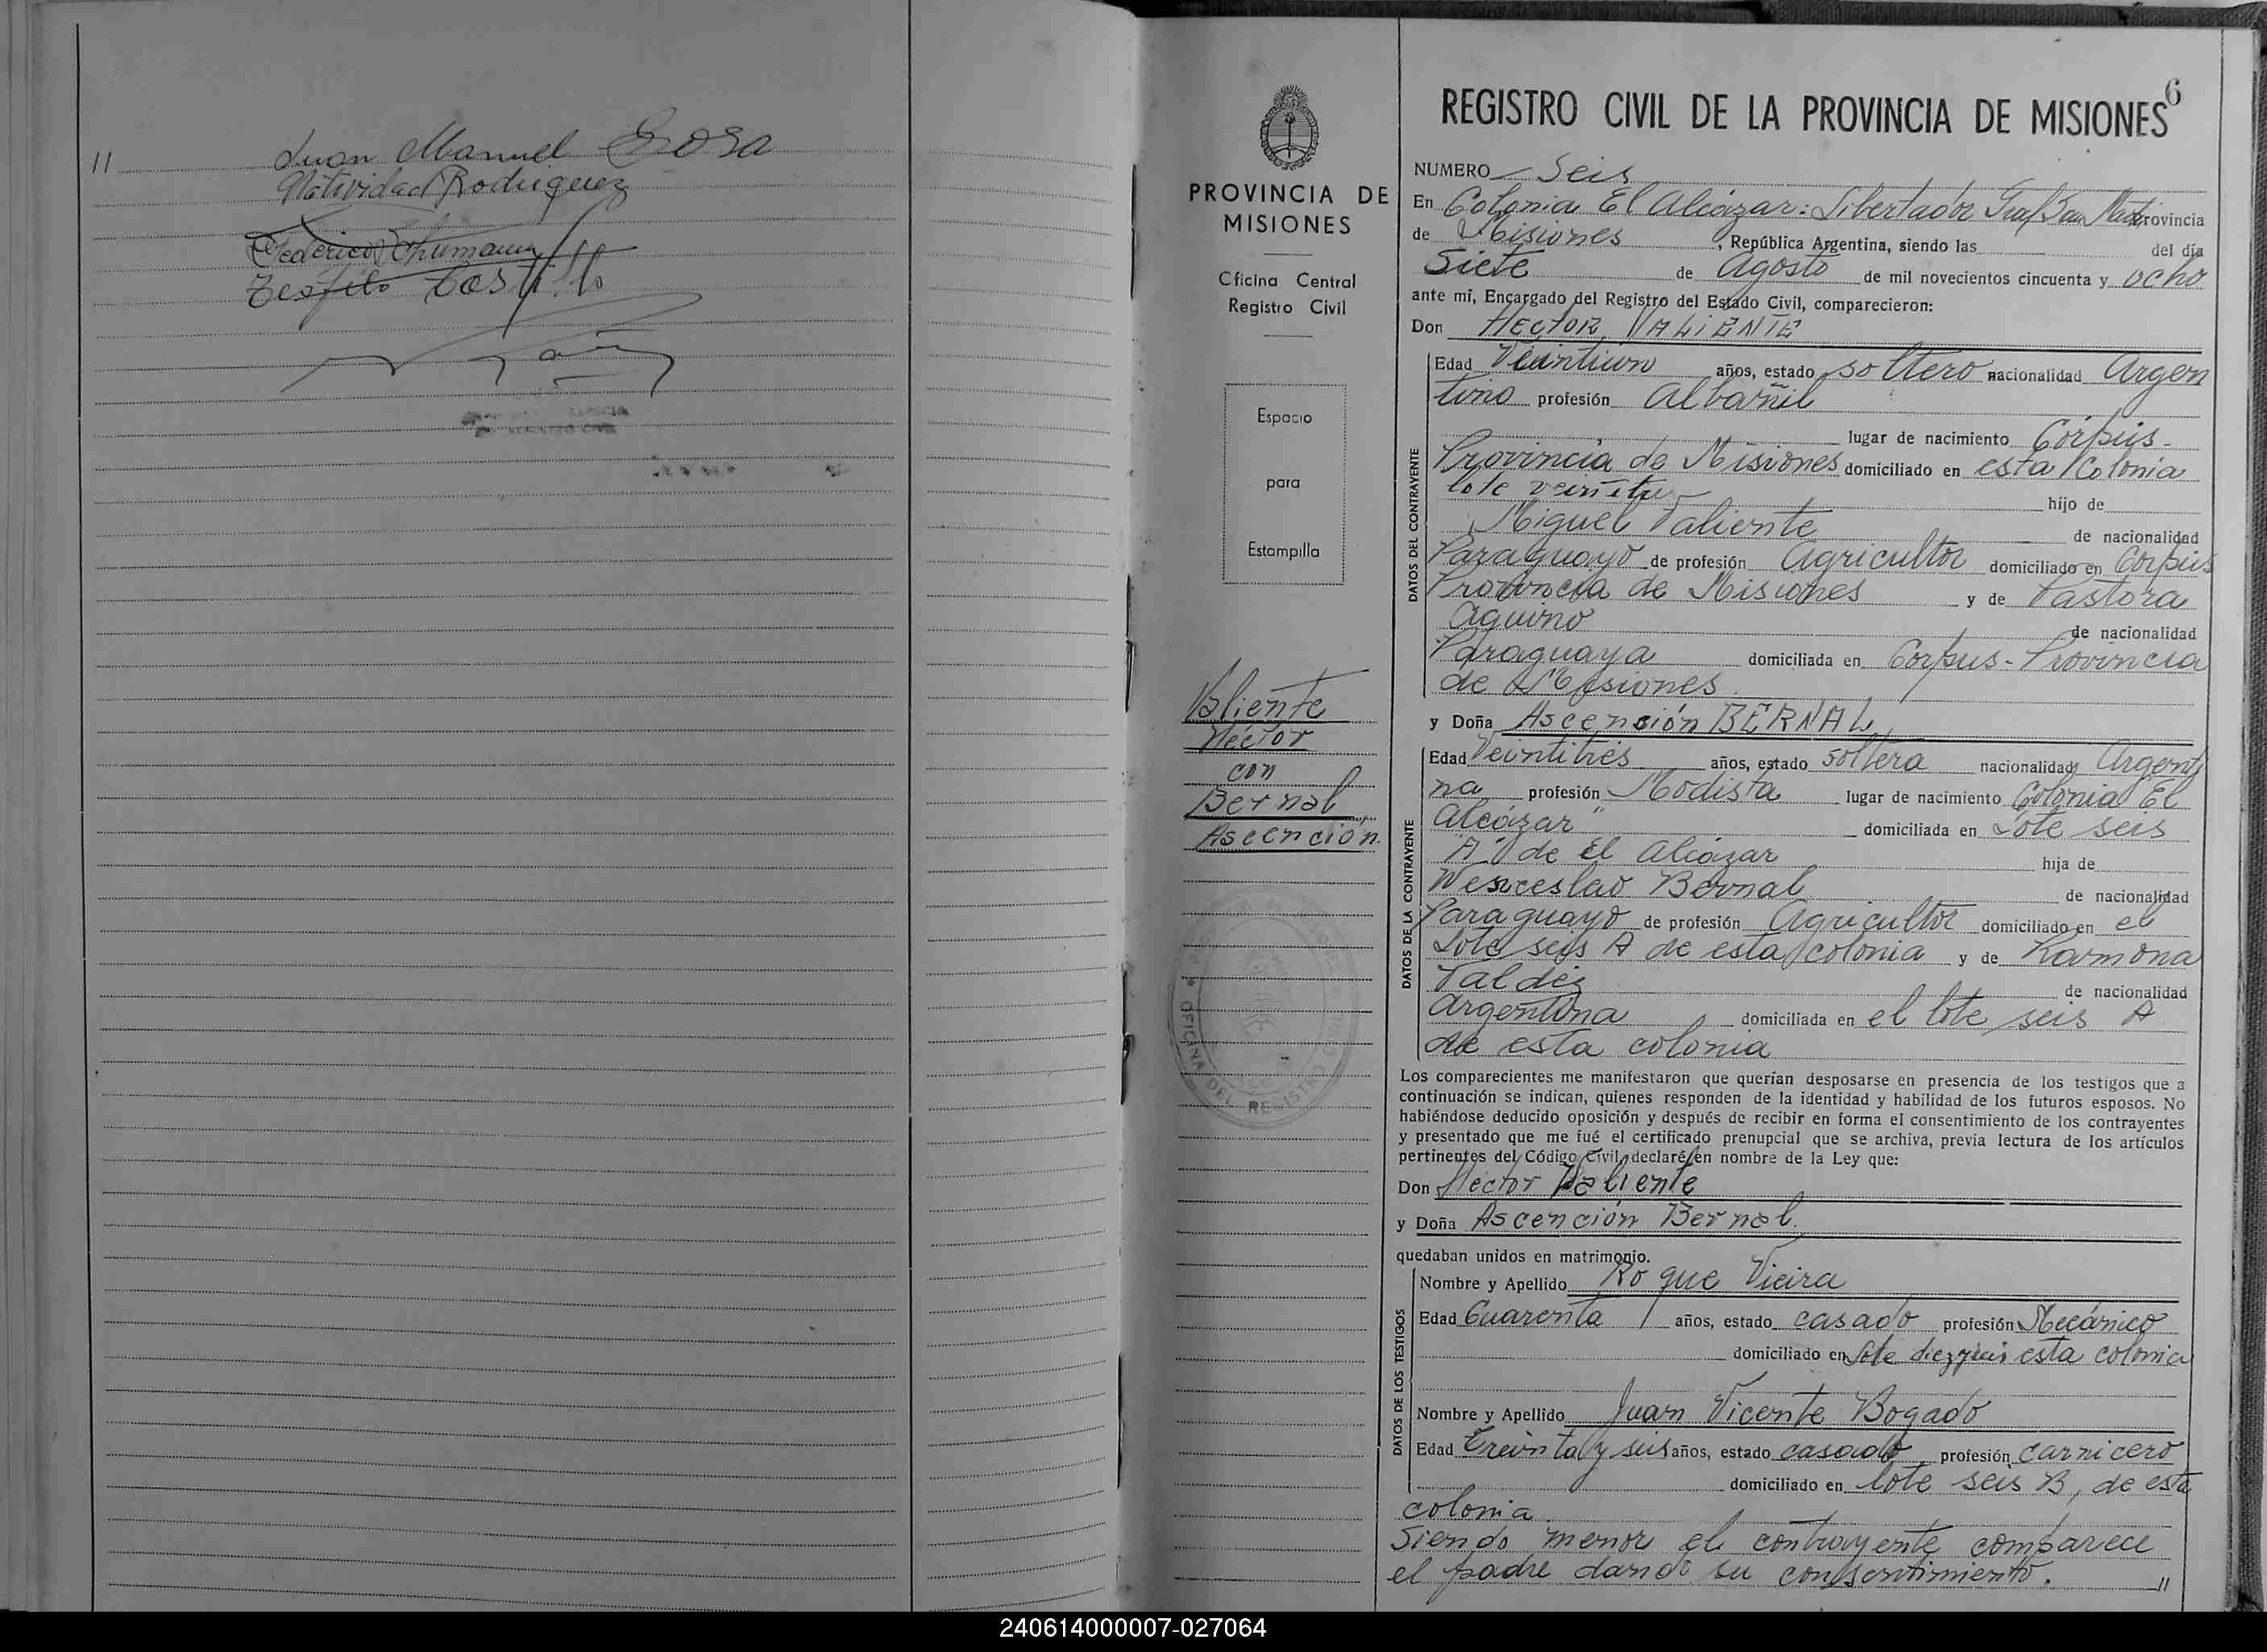 11 Juan Manuel Sosa
Natividad Rodriguez
Federico Chumann
Teofilo Castillo
PROVINCIA DE
MISIONES
Oficina Central
Registro Civil
Espacio
para
Estampilla
Valiente
Héctor
con
Bernal
Ascención.
OFICINA DEL REGISTRO
6
REGISTRO CIVIL DE LA PROVINCIA DE MISIONES
NUMERO Seis
En Colonia El Alcázar: Libertador Gral San Mart Provincia
de Misiones, República Argentina, siendo las del día
Siete de Agosto de mil novecientos cincuenta y ocho
ante mí, Encargado del Registro del Estado Civil, comparecieron:
Don HECTOR VALIENTE
DATOS DEL CONTRAYENTE
Edad Veintiun años, estado soltero nacionalidad Argen
tino profesión Albañil
lugar de nacimiento Corpus-
Provincia de Misiones domiciliado en esta Colonia
lote hijo de
Miguel Valiente de nacionalidad
Paraguayo de profesión Agricultor domiciliado en Corpus
Provincia de Misiones y de Pastora
Aquino de nacionalidad
Paraguaya domiciliada en Corpus-Provincia
de Misiones.
y Doña Ascensión BERNAL
DATOS DE LA CONTRAYENTE
Edad Veintitrés años, estado soltera nacionalidad Argenti
na profesión Modista lugar de nacimiento Colonia El
Alcázar" domiciliada en Lote seis
"A" de El Alcázar hija de
Wenceslao Bernal de nacionalidad
Paraguayo de profesión Agricultor domiciliado en el
Lote seis A de esta colonia y de Ramona
Valdéz de nacionalidad
argentina domiciliada en el lote seis A
de esta colonia
Los comparecientes me manifestaron que querían desposarse en presencia de los testigos que a
continuación se indican, quienes responden de la identidad y habilidad de los futuros esposos. No
habiéndose deducido oposición y después de recibir en forma el consentimiento de los contrayentes
y presentado que me fué el certificado prenupcial que se archiva, previa lectura de los artículos
pertinentes del Código Civil, declaré en nombre de la Ley que:
Don Héctor Valiente
y Doña Ascención Bernal.
quedaban unidos en matrimonio.
DATOS DE LOS TESTIGOS
Nombre y Apellido Roque Vieira
Edad Cuarenta años, estado casado profesión Mecánico
domiciliado en Lote esta colonia
Nombre y Apellido Juan Vicente Bogado
Edad Treinta y seis años, estado casado profesión carnicero
domiciliado en lote seis B, de esta
colonia.
Siendo menor el contrayente comparece
el padre dando su consentimiento. 11
240614000007-027064